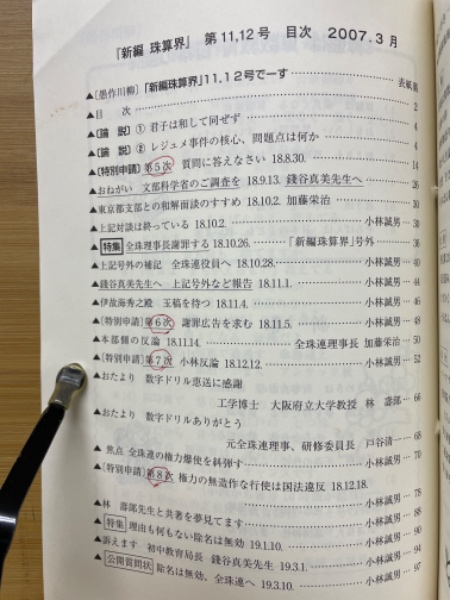 『新編 珠算界』 第11,12号 目次 2007.3月
▲〔愚作川柳〕「新編珠算界」11,12号でーす……表紙裏
▲目 次……2
▲〔論 説〕① 君子は和して同ぜず……4
▲〔論 説〕② レジュメ事件の核心、問題点は何か……4
▲〔特別申請〕第5次 質問に答えなさい 18.8.30.……14
▲おねがい 文部科学省のご調査を 18.9.13. 錢谷真美先生へ……26
▲東京都支部との和解面談のすすめ 18.10.2. 加藤栄治……30
▲上記対談は終っている 18.10.2.……小林誠男…
▲特集 全珠理事長謝罪する 18.10.26.……「新編珠算界」号外…36
▲上記号外の補記 全珠連役員へ 18.10.28.……小林誠男…40
▲錢谷真美先生へ 上記号外など報告 18.11.1.……小林誠男…44
▲伊故海秀之殿 玉稿を待つ 18.11.4.……小林誠男…46
▲〔特別申請〕第6次 謝罪広告を求む 18.11.5.……小林誠男…48
▲本部側の反論 18.11.14.……全珠連理事長 加藤栄治…50
▲〔特別申請〕第7次 小林反論 18.12.12.……小林誠男…52
▲おたより 数字ドリル恵送に感謝
工学博士 大阪府立大学教授 林 壽郎…66
▲おたより 数字ドリルありがとう
元全珠連理事、研修委員長 戸谷清一…68
▲焦点 全珠連の権力爆使を糾弾す……小林誠男…70
▲〔特別申請〕第8次 権力の無造作な行使は国法違反 18.12.18.
小林誠男…78
▲林 壽郎先生と共著を夢見てます……小林誠男…88
▲特集 理由も何もない除名は無効 19.1.10.……小林誠男…90
▲訴えます 初中教育局長 錢谷真美先生 19.3.1.……小林誠男…94
▲公開質問状 除名は無効、全珠連へ 19.3.10.……小林誠男…97